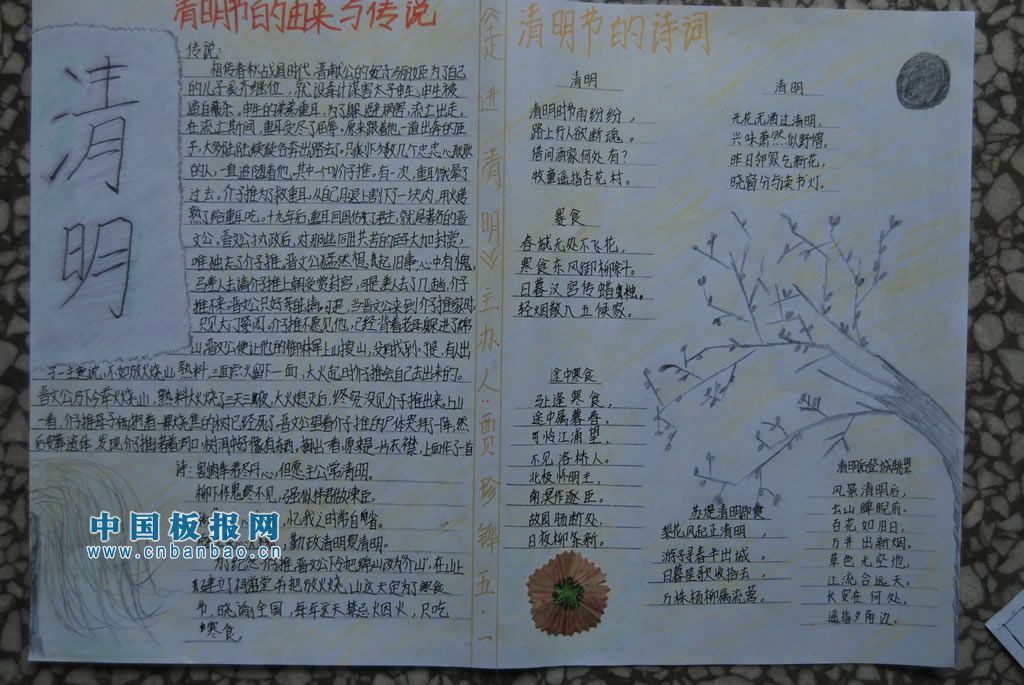 清明节的由来与传说
清明
传说:
相传春秋战国时代,晋献公的妃子骊姬为了自己
的儿子奚齐继位,就设毒计谋害太子申生,申生被
逼自杀。申生的弟弟重耳,为了躲避祸害,流亡出走。
在流亡期间,重耳受尽了屈辱。原来跟着他一道出奔的臣
子,大多陆陆续续各奔出路去了。只剩下少数几个忠心耿耿
的人,一直追随着他。其中一人叫介子推。有一次,重耳饿晕了
过去。介子推为了救重耳,从自己腿上割下了一块肉,用火烤
熟了给重耳吃。十九年后,重耳回国做了君主,就是著名的晋
文公。晋文公执政后,对那些同甘共苦的臣子大加封赏,
唯独忘了介子推。晋文公猛然想起旧事,心中有愧,
马上差人去请介子推上朝受赏封官。可是,差人去了几趟,介子
推不来。晋文公只好亲自去请。可是,当晋文公来到介子推家时,
只见大门紧闭。介子推不愿见他,已经背着老母躲进了绵
山,晋文公便让他的御林军上山搜山,没有找到。于是,有人出
了一主意说,不如放火烧山,三面点火留下一面,大火起时介子推会自己走出来的。
晋文公乃下令举火烧山,孰料大火烧了三天三夜,大火熄灭后,终究没见介子推出来。上山
一看,介子推母子俩抱着一棵烧焦的柳树已经死了。晋文公望着介子推的尸体哭拜一阵,然
后安葬遗体,发现介子推脊梁堵着柳树树洞,洞里好像有东西。掏出一看,原来是一片衣襟,上面作了首
诗:割肉奉君尽丹心,但愿主公常清明。
柳下作鬼终不见,强似伴君做谏臣。
忆我之时常自省。
勤政清明复清明。
为了纪念介子推,晋文公下令把绵山改为“介山”,在山上
建立了祠堂,并把放火烧山这天定为了寒食
节,晓谕全国,每年这天禁忌烟火,只吃
寒食。
走进清明♡主办人:贾珍铧五·一
清明节的诗词
清明
清明时节雨纷纷,
路上行人欲断魂。
借问酒家何处有?
牧童遥指杏花村。
寒食
春城无处不飞花,
寒食东风御柳斜。
日暮汉宫传蜡烛,
轻烟散入五侯家。
途中寒食
马上逢寒食,
途中属暮春。
可怜江浦望,
不见洛桥人。
北极怀明主,
南溟作逐臣。
故园肠断处,
日夜柳条新。
清明
无花无酒过清明,
兴味萧然似野僧。
昨日邻家乞新花,
晓窗分与读书灯。
苏堤清明即事
梨花风起正清明,
游子寻春半出城。
日暮笙歌收拾去,
万株杨柳属流莺。
清明后登城眺望
风景清明后,
云山睥睨前。
百花如旧日,
万井出新烟。
草色无空地,
江流合远天。
长安在何处,
遥指夕阳边。
中国板报网
www.cnbanbao.cn